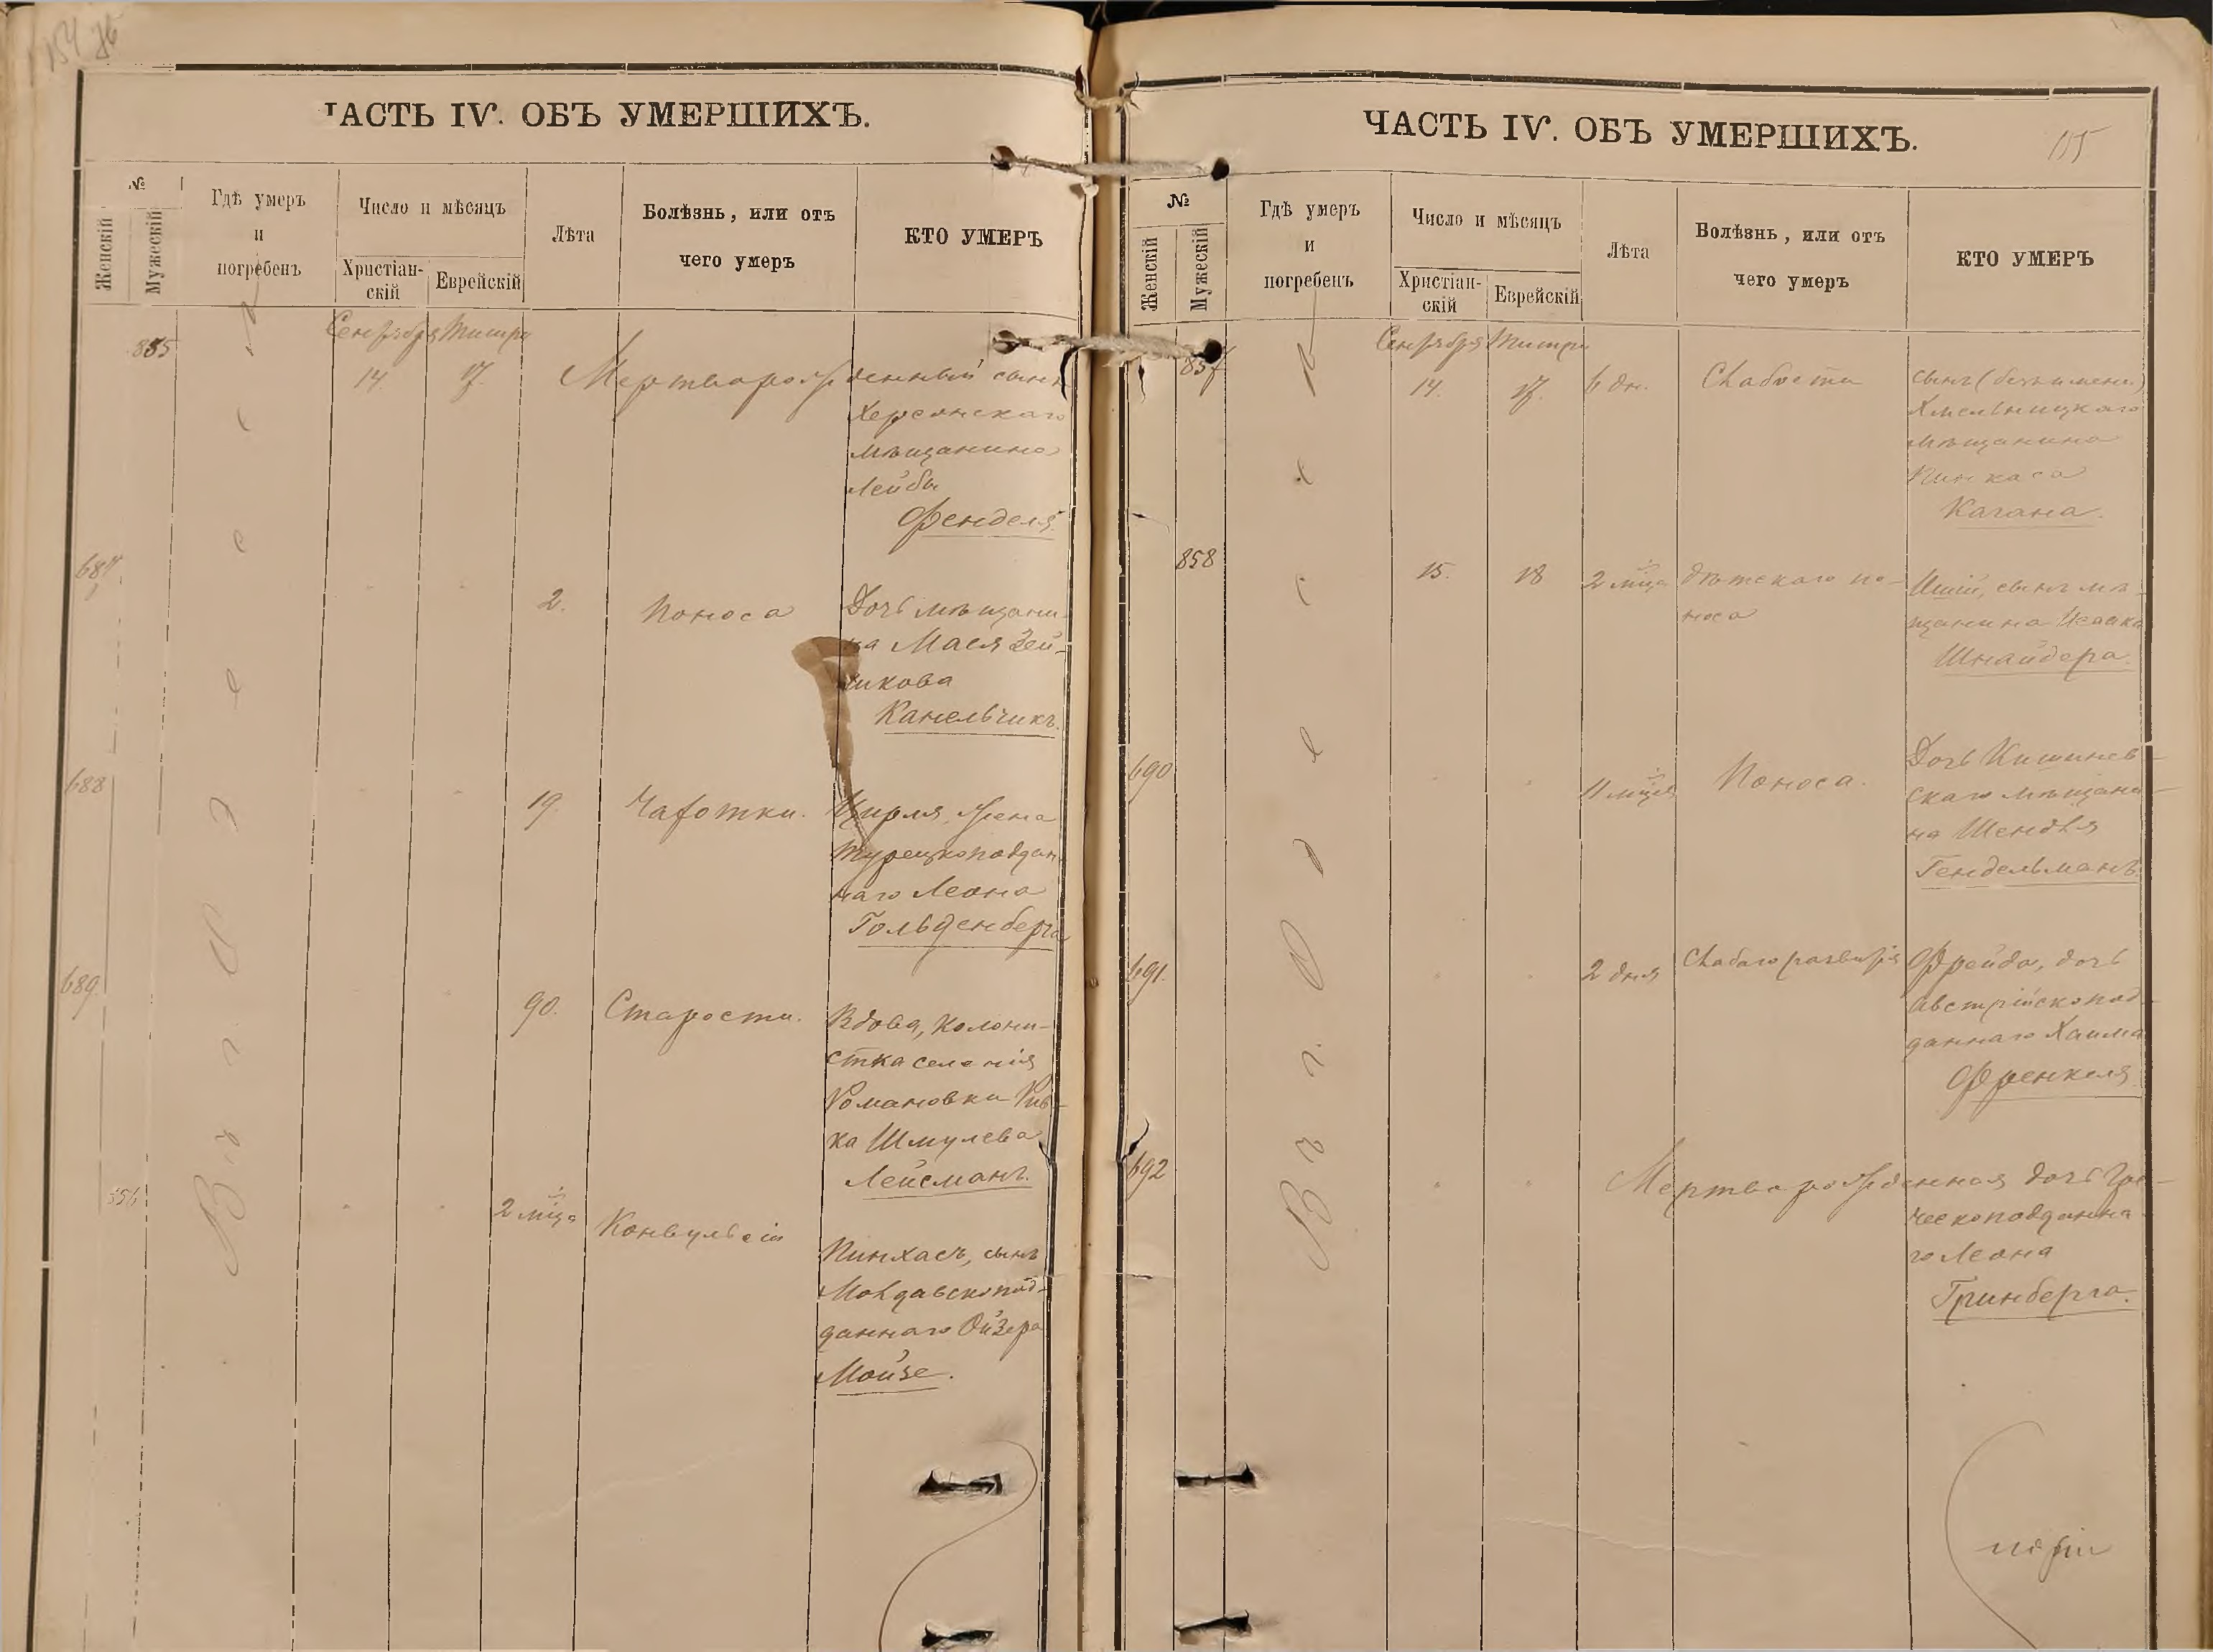 154
ЧАСТЬ IV. ОБЪ УМЕРШИХЪ.
№
Женскій
Мужескій
Гдѣ умеръ
и
погребенъ
Число и мѣсяцъ
Христіан-
скій
Еврейскій
Лѣта
Болѣзнь, или отъ
чего умеръ
КТО УМЕРЪ
Въ г. Одессѣ
Сентября Тишри
855
14. 17. Мертворожденный сынъ
Херсонскаго
мѣщанина
Лейбы
Френделя.
687
2. Поноса Дочь мѣщани-
на Мася Зей-
ликова
Канельчикъ.
688
19. Чахотки. Цирля, жена
турецкоподдан-
наго Леона
Гольденберга
689.
90. Старости. Вдова, колони-
стка селенія
Романовки Рив-
ка Шмулева
Лейсманъ.
856
2 мѣца Конвульсіи Пинхасъ, сынъ
Молдавскопод-
даннаго Ойзера
Мойзе.
ЧАСТЬ IV. ОБЪ УМЕРШИХЪ.
155
№
Женскій
Мужескій
Гдѣ умеръ
и
погребенъ
Число и мѣсяцъ
Христіан-
скій
Еврейскій
Лѣта
Болѣзнь, или отъ
чего умеръ
КТО УМЕРЪ
Въ г. Одессѣ
Сентября Тишри
857
14. 17. 6 дн. Слабости сынъ (безъ имени)
Хмельницкаго
мѣщанина
Пинкаса
Кагана.
858
15. 18 2 мѣца дѣтскаго по-
носа
сынъ мѣ-
щанина Исаака
Шнайдера.
690
11 мѣцевъ Поноса. Дочь Кишинев-
скаго мѣщани-
на Шендля
Гендельманъ.
691.
2 дня Слабаго развитія Фрейда, дочь
Австрійскопод-
даннаго Хаима
Френкеля.
692
Мертворожденная дочь Гре-
ческоподданна
го Леона
Гринберга.